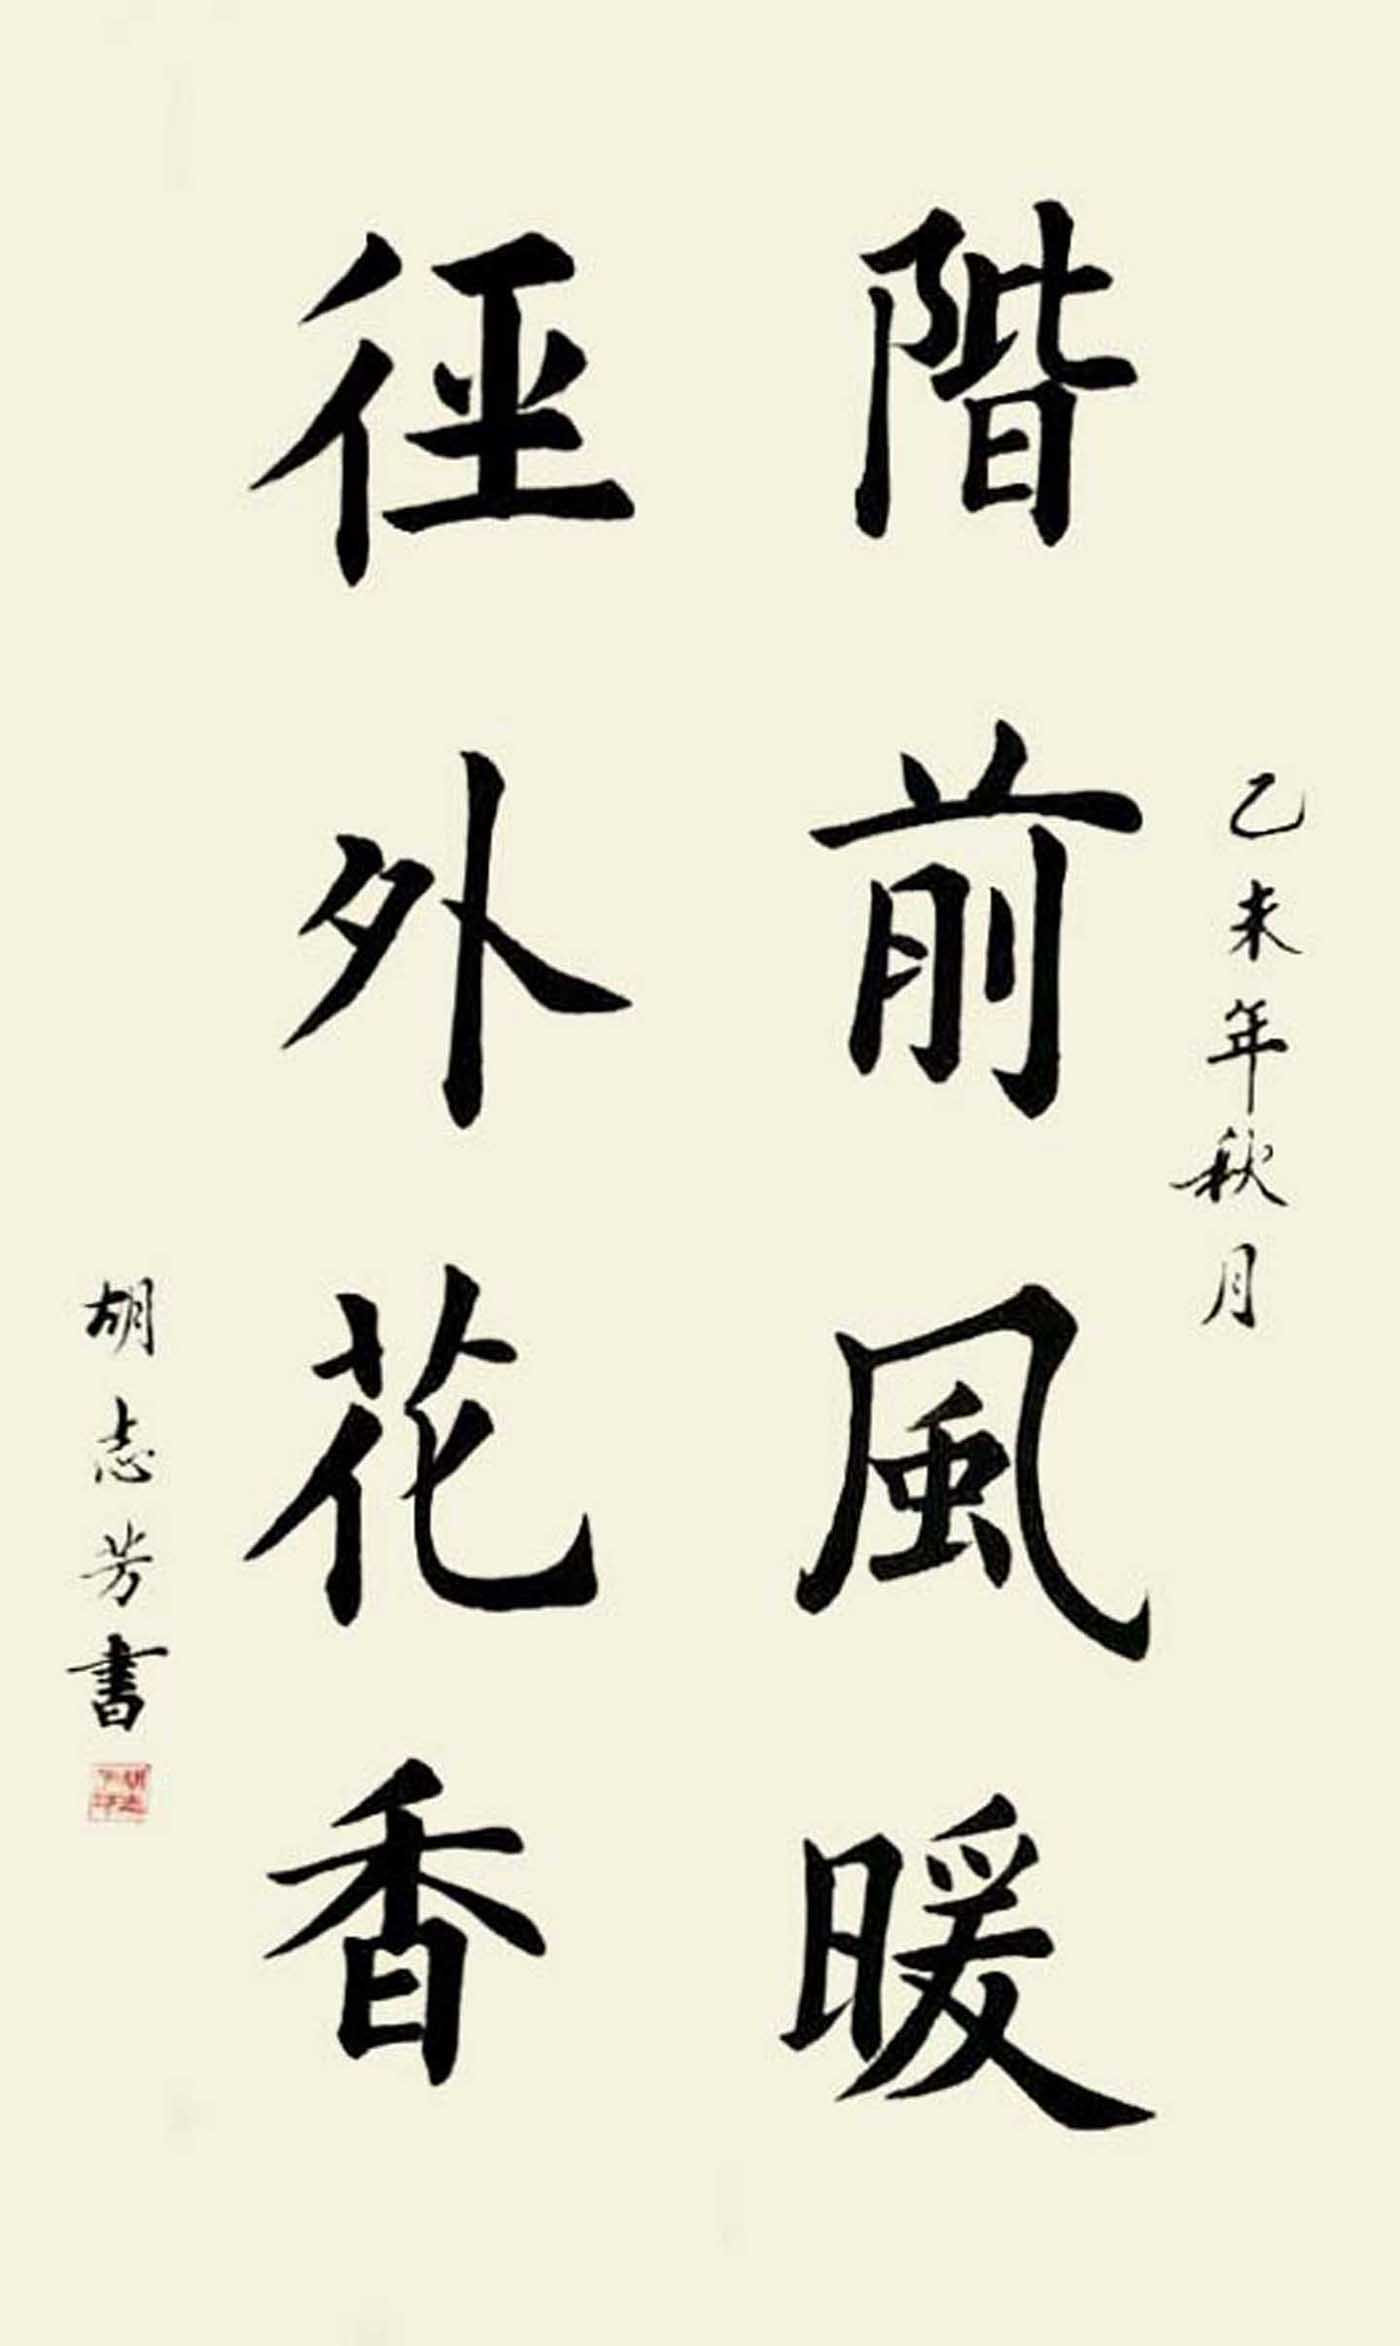 乙未年秋月
階前風暖
徑外花香
胡志芳書